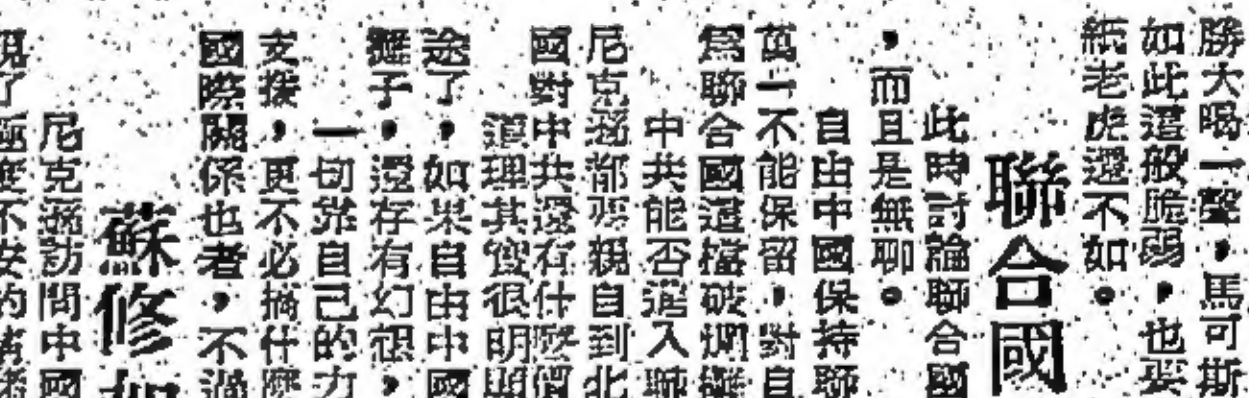 勝大喝一聲，馬可斯
如此這般脆弱，也要
紙老虎還不如。
聯合國
此時討論聯合國
，而且是無聊。
自由中國保持聯
萬一不能保留，對自
為聯合國這檔破爛攤
中共能否進入聯
尼克森都要親自到北
國對中共還有什麼價
道理其實很明顯
途了，如果自由中國
攤子，還存有幻想，
一切靠自己的力
支撐，更不必搞什麼
國際關係也者，不過
蘇修如
尼克森訪問中國
現了極度不安的情緒